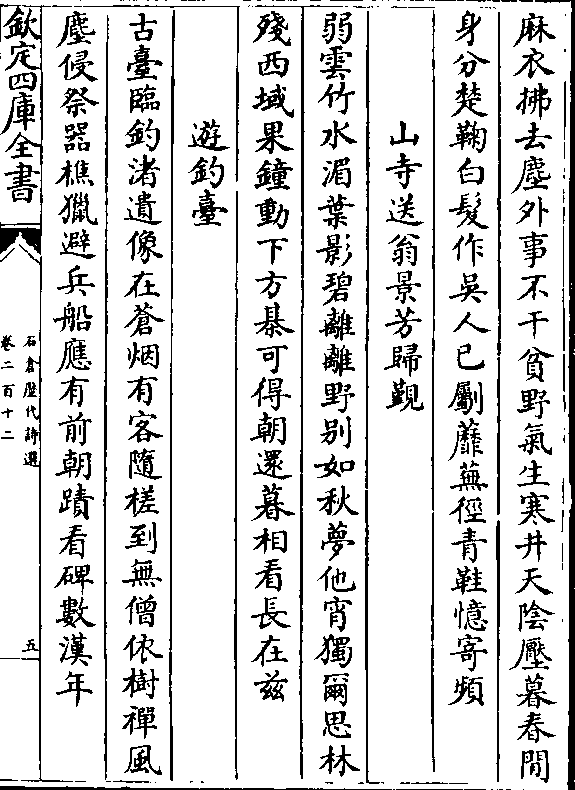 麻衣拂去塵外事不干貧野氣生寒井天陰壓暮春閒
身分楚鞠白髮作吳人已劚蘼蕪徑青鞋憶寄頻
山寺送翁景芳歸覲
弱雲竹水湄葉影碧離離野别如秋夢他宵獨爾思林
殘西域果鐘動下方棊可得朝還暮相看長在兹
遊釣臺
古臺臨釣渚遺像在蒼烟有客隨槎到無僧依樹禪風
塵侵祭器樵獵避兵船應有前朝蹟看碑數漢年
欽定四庫全書
石倉歷代詩選
卷二百十二
五